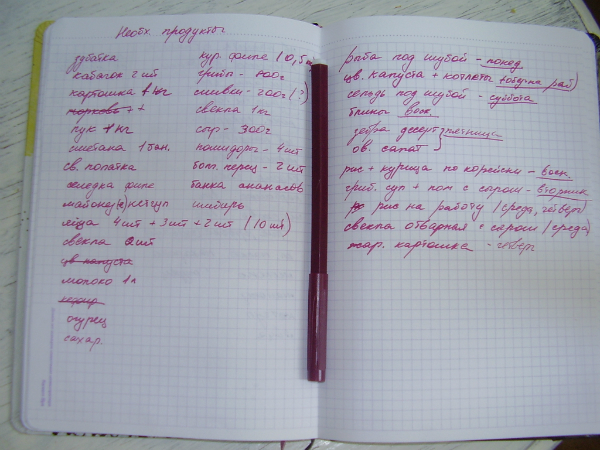 Необх. продукты
зубатка
кабачок 2 шт
картошка 1 кг
морковь
лук 1 кг
сметана 1 бан.
св. лопатка
селедка филе
майонез кетчуп
яйца 4 шт + 3 шт + 2 шт (10 шт)
свекла 2 шт
цв капуста
молоко 1 л
огурец
сахар.
кур. филе 0,5 кг
грибы - 400 г
сливки - 200 г (?)
свекла 1 кг
сыр - 300 г
помидоры - 4 шт
бол. перец - 2 шт
банка ананасов
имбирь
рыба под шубой - понед.
цв. капуста + котлеты + обед на раб)
сельдь под шубой - суббота
блины воск.
зебра десерт } пятница
ов. салат
рис + курица по корейски - воск.
гриб. суп + пом с сыром - вторник
рис на работу (среда, четверг)
свекла отварная с сыром (среда)
жар. картошка - четверг